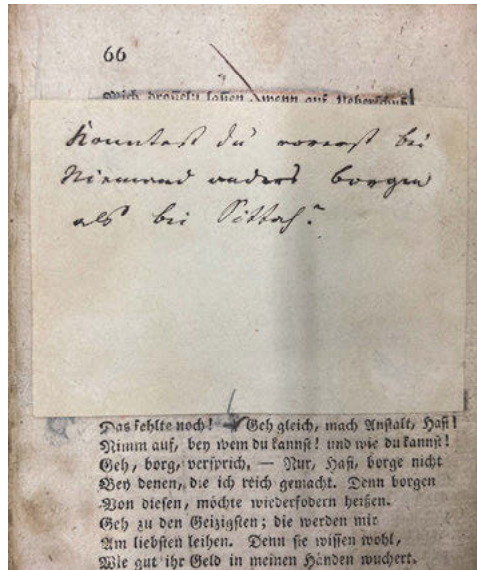 66
Mich droßeln lassen, wenn auf Ueberschuß
Konntest du vorerst bei
Niemand anders borgen
als bei Sittah?
Das fehlte noch! — Geh gleich, mach Anstalt, Hafi!
Nimm auf, bey wem du kannst! und wie du kannst!
Geh, borg, versprich. — Nur, Hafi, borge nicht
Bey denen, die ich reich gemacht. Denn borgen
Von diesen, möchte wiederfodern heißen.
Geh zu den Geizigsten; die werden mir
Am liebsten leihen. Denn sie wissen wohl,
Wie gut ihr Geld in meinen Händen wuchert.